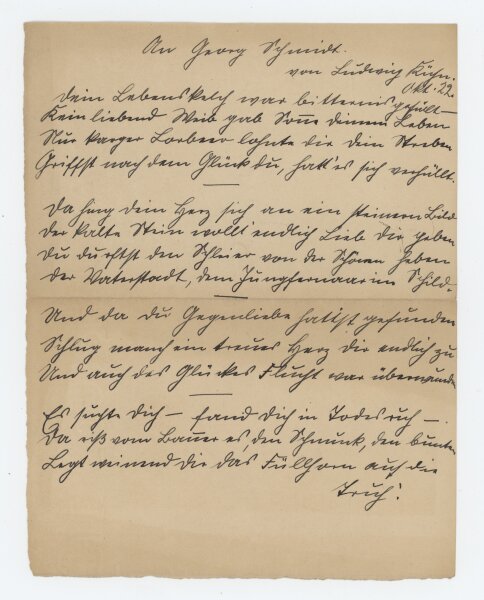 An Georg Schmidt.
von Ludwig Kühn.
Okt. 22.
Dein Lebenskelch war bitternisgefüllt —
Kein liebend Weib gab Sonne deinem Leben
Nur karger Lorbeer lohnte dir dein Streben
Griffst nach dem Glück du, hatt' es sich verhüllt.
Da hing dein Herz sich an ein steinern Bild
Der kalte Stein wollt endlich Lieb dir geben
Du durftst den Schleier von der Schönen heben
Der Vaterstadt, dem Jungfernaar im Schild.
Und da du Gegenliebe hattst gefunden
Schlug manch ein treues Herz dir endlich zu
Und auch des Glückes Flucht war überwunden
Es suchte dich — fand dich in Todesruh —
Da riß vom Bauer es, den Schmuck, den bunten
Legt weinend dir das Füllhorn auf die
Truh'.